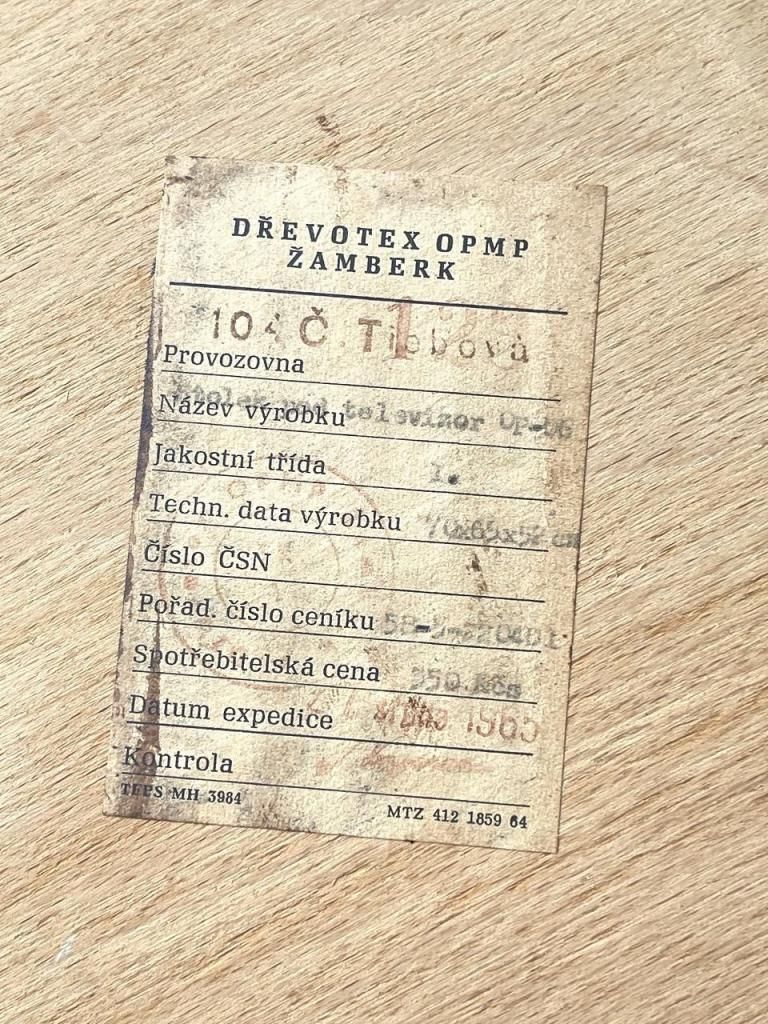 DŘEVOTEX OPMP
ŽAMBERK
104 Č. Třebová
Provozovna
Název výrobku Stolek pod televizor OP-06
Jakostní třída 1.
Techn. data výrobku 70x65x52 cm
Číslo ČSN
Pořad. číslo ceníku
Spotřebitelská cena 350 Kčs
Datum expedice srpna 1965
Kontrola
TEPS MH 3984
MTZ 412 1859 64